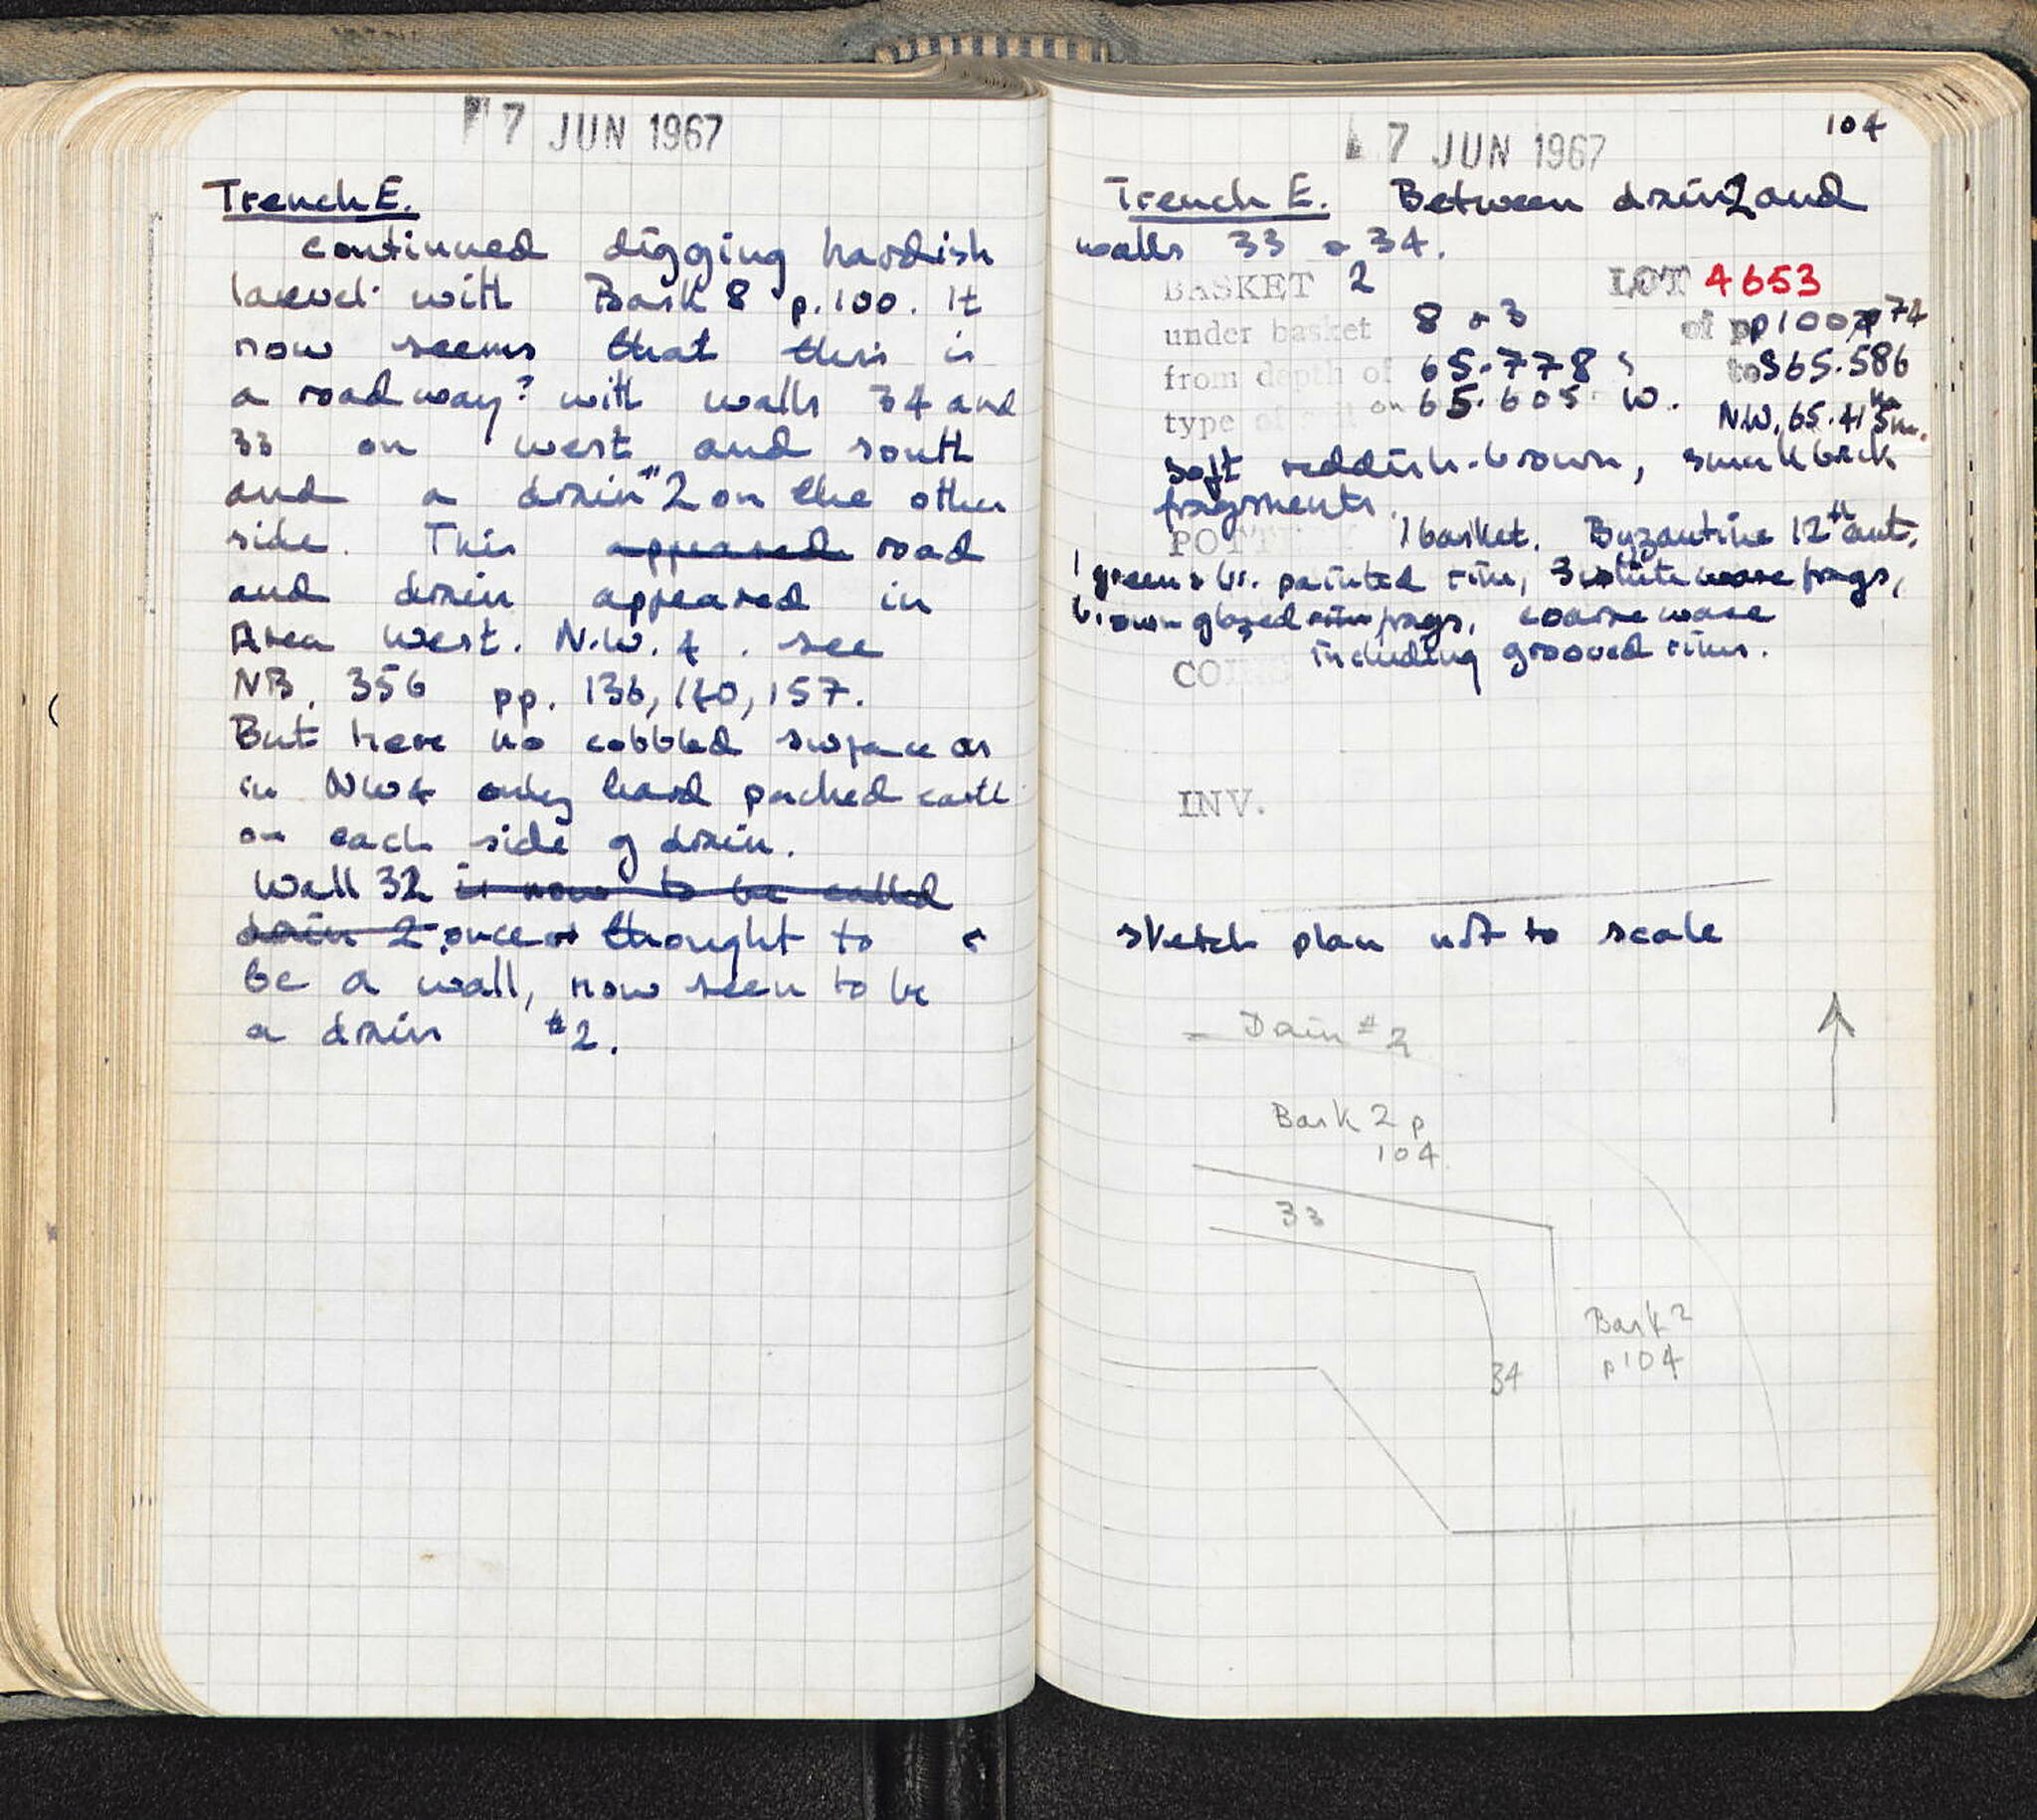 7 JUN 1967
Trench E.
continued digging hardish
laevel with Bask 8 p. 100. It
now seems that this is
a roadway? with walls 34 and
33 on west and south
and a drain #2 on the other
side. This appeared road
and drain appeared in
Area West. N.W. 4. see
NB. 356 pp. 136, 140, 157.
But here no cobbled surface as
in NW4 only hard packed earth
on each side of drain.
Wall 32 is now to be called
drain 2, once thought to
be a wall, now seen to be
a drain #2.
7 JUN 1967
104
Trench E. Between drain 2 and
walls 33 & 34.
BASKET 2 LOT 4653
under basket 8 & 3 of pp 100, p 74
from depth of 65.778 S to S 65.586
type of soil on 65.605 W. N.W. 65.415m.
soft reddish-brown, small brick
fragments.
POTTERY 1 basket. Byzantine 12th cent.
1 green & br. painted rim, 3 white ware frags,
brown glazed rim frags, coarse ware
including grooved rims.
COINS
INV.
sketch plan not to scale
Dain #2
Bask 2 p
104
33
Bask 2
p 104
34